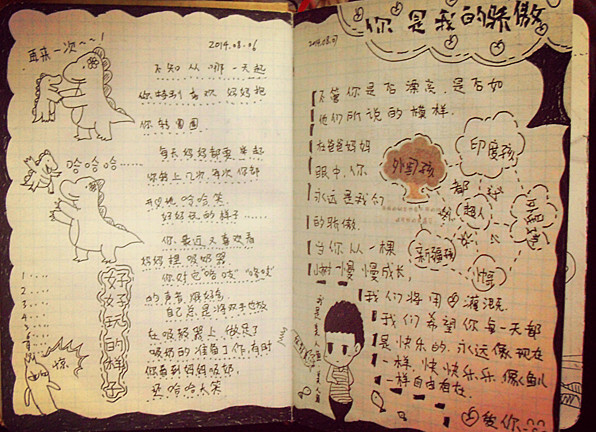 再来一次~~!
2014.08.06
不知从哪一天起
你特别喜欢 妈妈把
你转圈圈
每天妈妈都要举起
你转上几次,每次你都
开心地哈哈笑
好好玩的样子……
哈哈哈……
你最近又喜欢看
妈妈捏吸奶器
的声音
在吸奶器上做足了
吸奶的准备工作,有时
你看到妈妈吸奶,
还哈哈大笑
好好玩的样子
1....
2....
3....
2014.08.07
你是我的骄傲
不管你是否漂亮,是否如
他们所说的模样.
在爸爸妈妈
眼中,你
永远是我们
的骄傲.
当你从一棵
小树慢慢成长,
我们将用心灌溉.
我们希望你每一天都
是快乐的.永远像现在
一样,快快乐乐,像鱼儿
一样自由自在.
爱你
外国孩
印度孩
都
超人
新疆孩